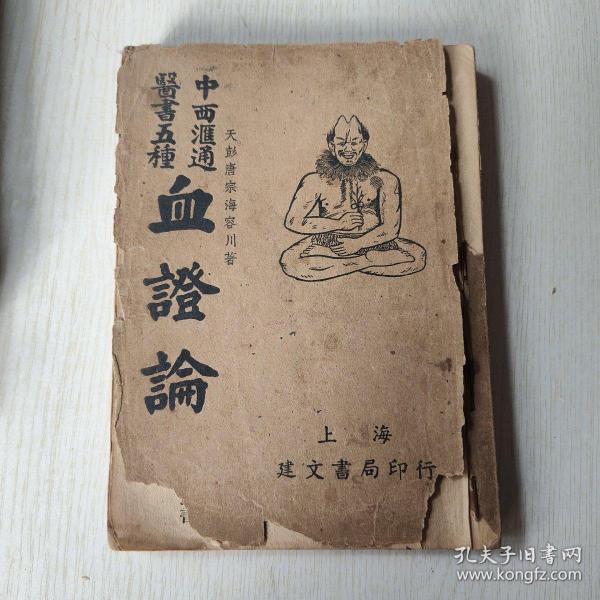 中西滙通
醫書五種
天彭唐宗海容川著
血證論
上海
建文書局印行
孔夫子旧书网
www.kongfz.com